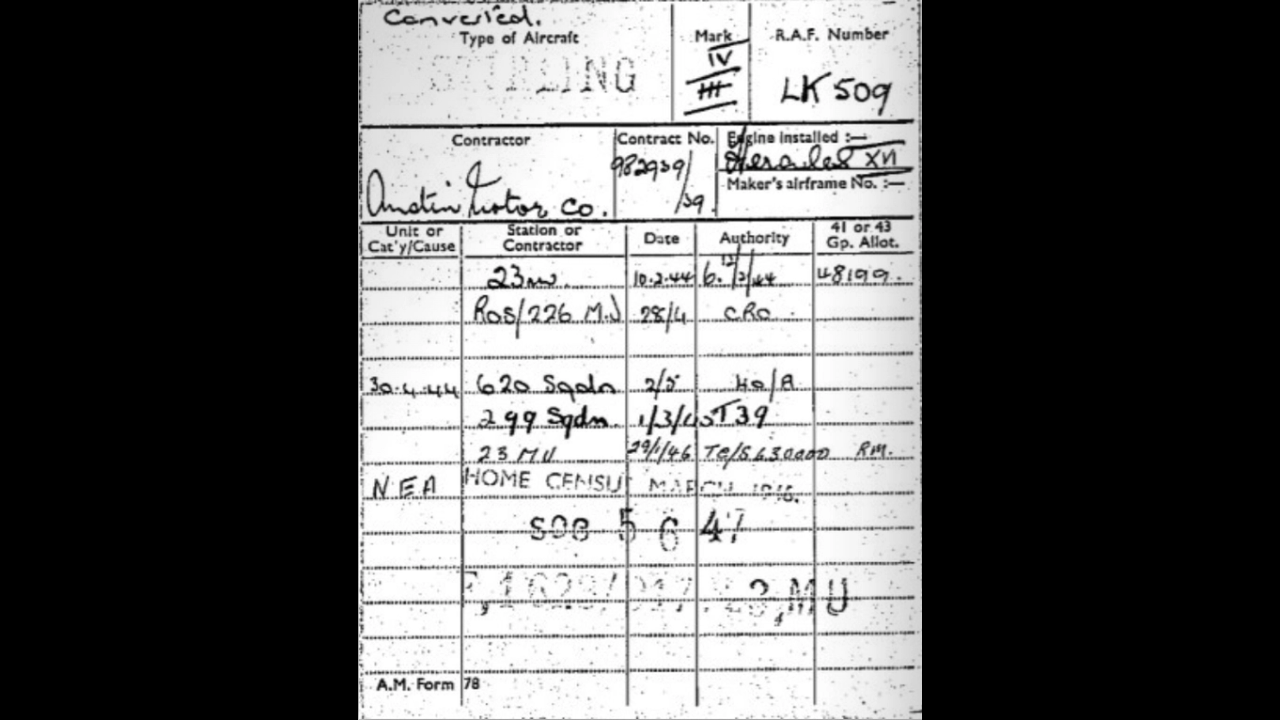 Converted.
Type of Aircraft Mark R.A.F. Number
STIRLING IV III LK 509
Contractor Contract No. Engine installed :—
Austin Motor Co. 982939/39. Hercules XVI
Maker's airframe No. :—
Unit or Cat'y/Cause Station or Contractor Date Authority 41 or 43 Gp. Allot.
23 MU. 10.2.44 6. 12/2/44 48199.
ROS/226 M.U 28/4 CRO
30.4.44 620 Sqdn 2/5 HO/A
299 Sqdn. 1/3/45 T39
23 MU 29/1/46 RM.
NEA HOME CENSUS MARCH 1946.
SOC 5 6 47
23,MU
A.M. Form 78